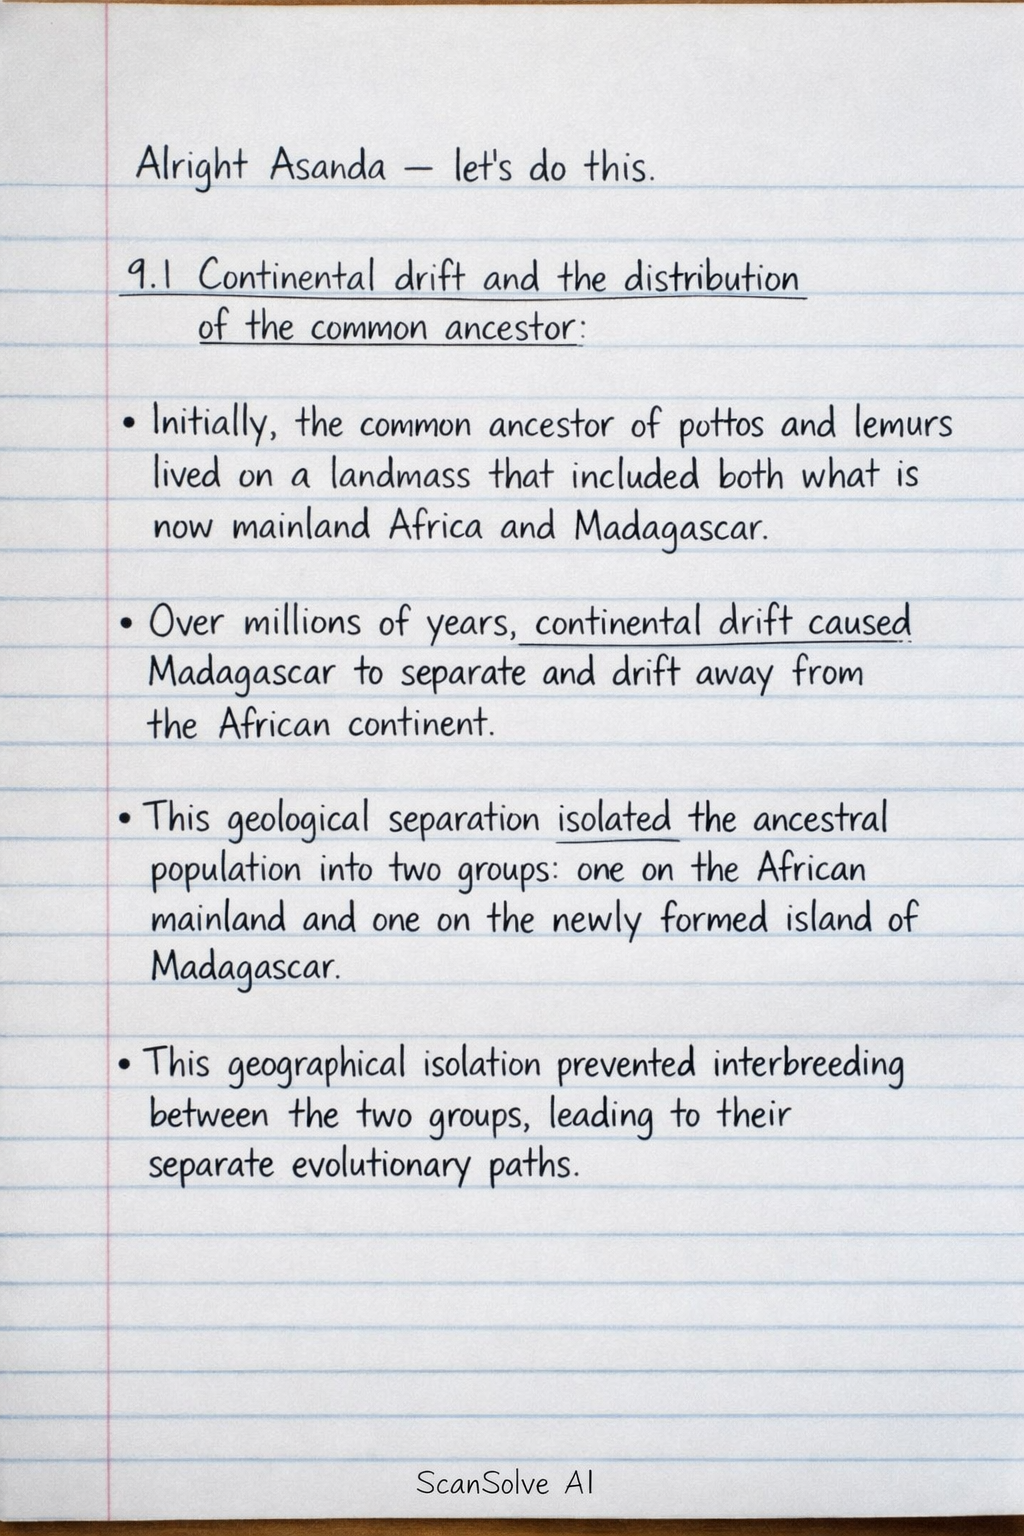 Alright Asanda — let's do this.
9.1 Continental drift and the distribution
of the common ancestor:
• Initially, the common ancestor of pottos and lemurs
lived on a landmass that included both what is
now mainland Africa and Madagascar.
• Over millions of years, continental drift caused
Madagascar to separate and drift away from
the African continent.
• This geological separation isolated the ancestral
population into two groups: one on the African
mainland and one on the newly formed island of
Madagascar.
• This geographical isolation prevented interbreeding
between the two groups, leading to their
separate evolutionary paths.
ScanSolve AI